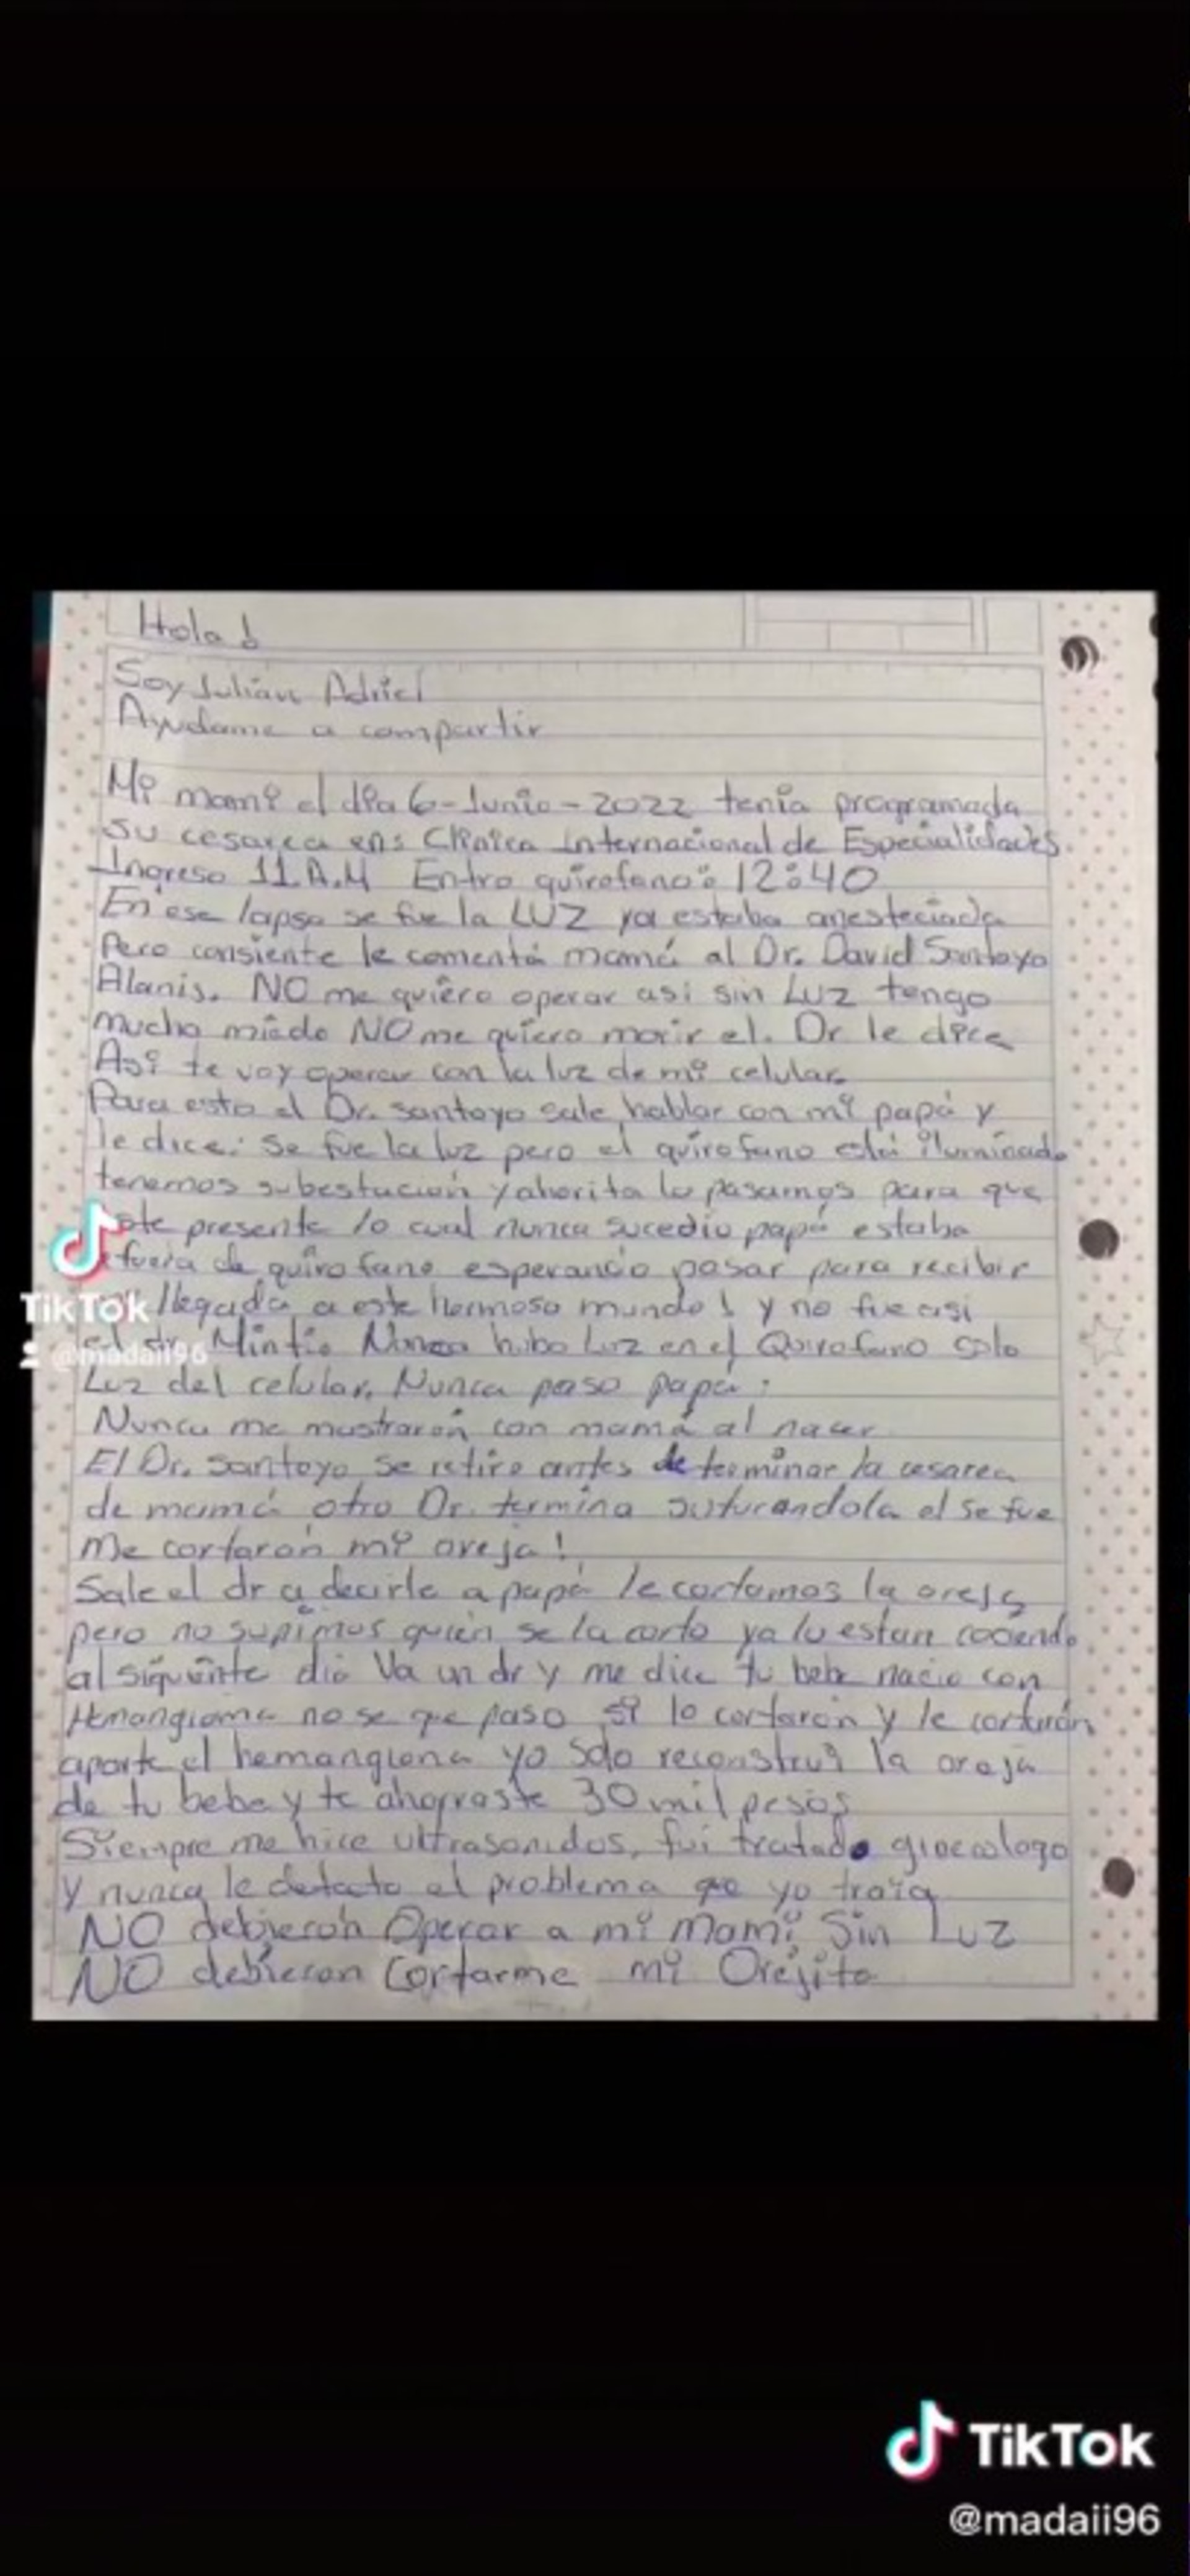 Hola!
Soy Julián Adriel
Ayudame a compartir
Mi mami el día 6-Junio-2022 tenía programada
su cesarea en: Clínica Internacional de Especialidades.
Ingreso 11 A.M Entro quirofano: 12:40
En ese lapso se fue la LUZ ya estaba anesteciada
Pero consiente le comentá mamá al Dr. David Santoyo
Alanis. NO me quiero operar asi sin LUZ tengo
mucho miedo NO me quiero morir el. Dr le dice
Así te voy operar con la luz de mi celular.
Para esto el Dr. santoyo sale hablar con mi papá y
le dice: Se fue la luz pero el quirofano está iluminado
tenemos subestación y ahorita lo pasamos para que
este presente lo cual nunca sucedio papá estaba
afuera de quirofano esperando pasar para recibir
llegada a este hermoso mundo! y no fue asi
el dr Mintio Nunca hubo Luz en el Quirofano solo
Luz del celular. Nunca paso papá.
Nunca me mostrarón con mamá al nacer
El Dr. Santoyo se retiro antes de terminar la cesarea
de mamá otro Dr. termina suturandola el se fue
Me cortarón mi oreja!
Sale el dr a decirle a papá le cortamos la oreja
pero no supimos quién se la corto ya lo estan cociendo
al siguiente dia Va un dr y me dice tu bebe nacio con
Hemangioma no se que paso si lo cortarón y le cortarón
aparte el hemangioma yo solo reconstrui la oreja
de tu bebe y te ahorraste 30 mil pesos
Siempre me hice ultrasonidos, fui tratado ginecologo
y nunca le detecto el problema que yo traía
NO debierón Operar a mi Mami Sin Luz
NO debieron Cortarme mi Orejita
TikTok
@madaii96
TikTok
@madaii96